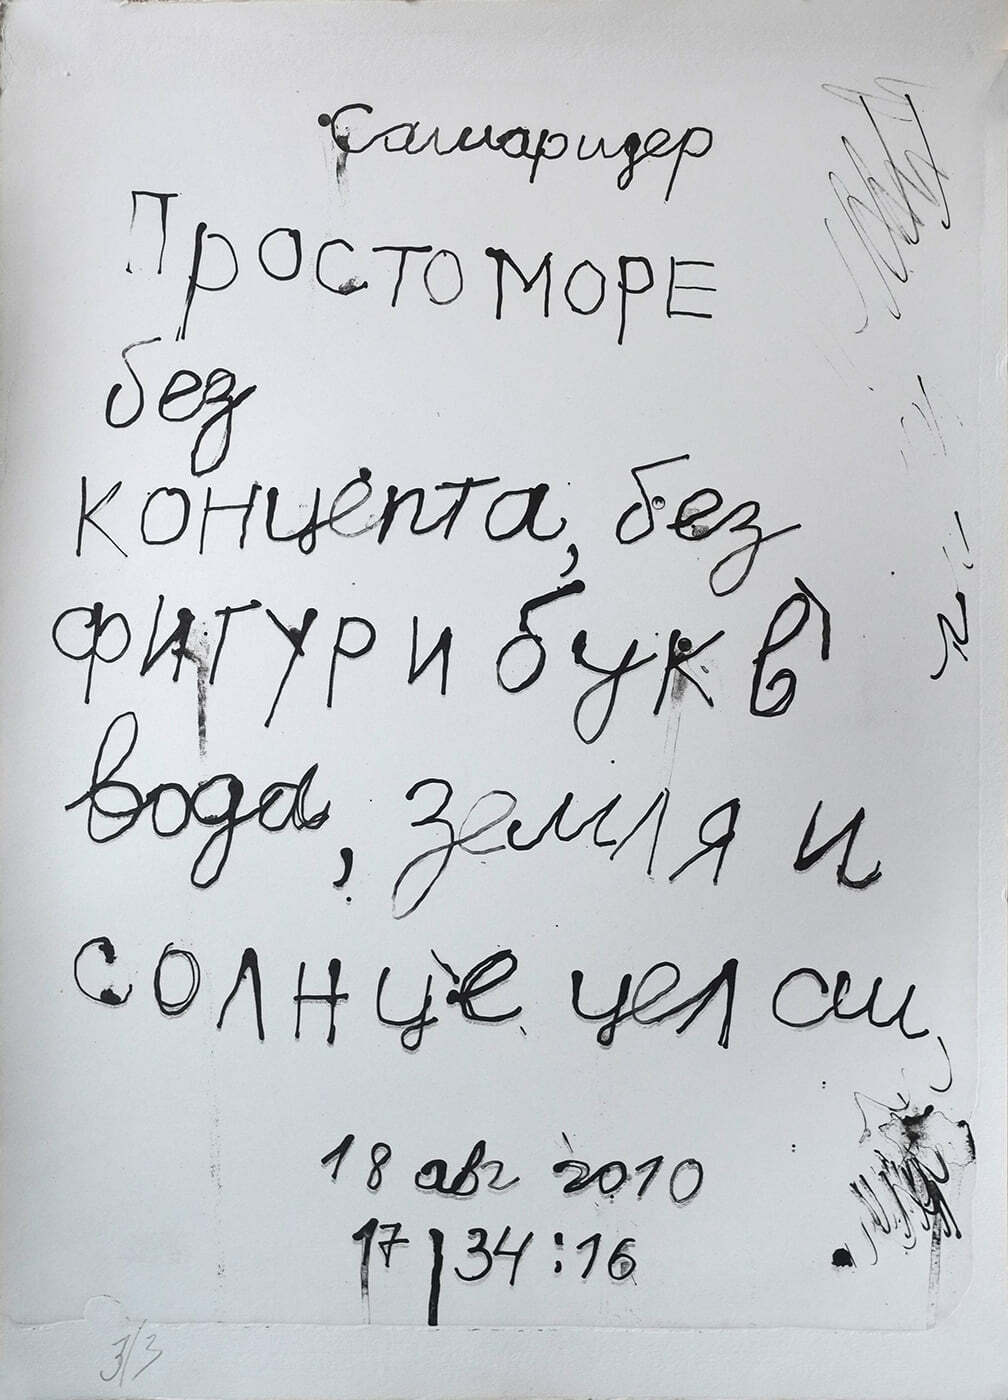 Самаридер
Просто МОРЕ
без
концепта, без
фигур и букв
вода, земля и
солнце цел ом
18 авг 2010
17|34:16
3/3